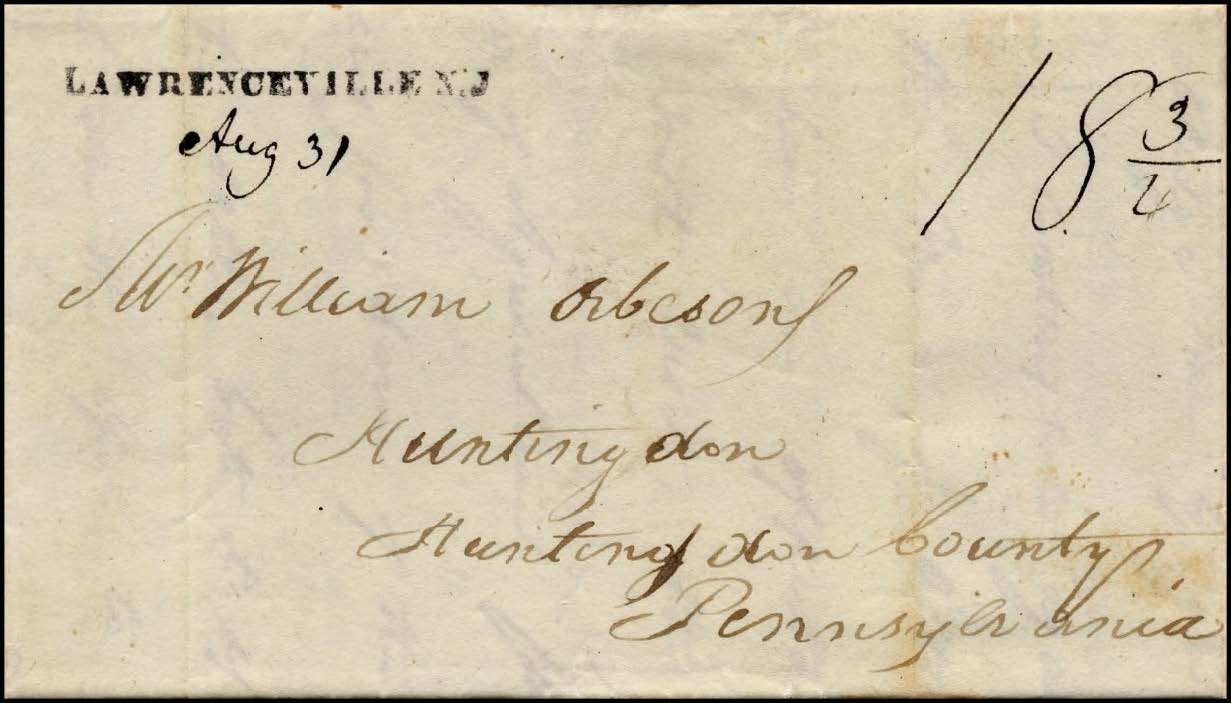 LAWRENCEVILLE N.J
Aug 31
18 3/4
Mr William Orbeson
Huntingdon
Huntingdon County,
Pennsylvania